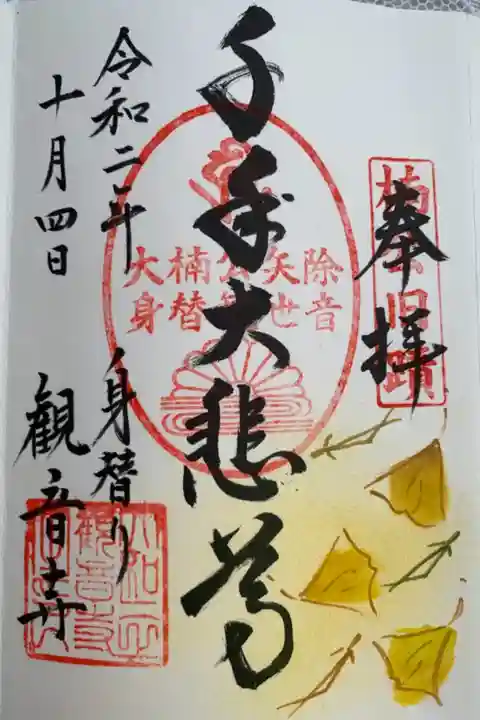 奉拝
楠公旧蹟
千手大悲尊
除矢公楠大
音世観替身
令和二年
十月四日
身替り
観音寺